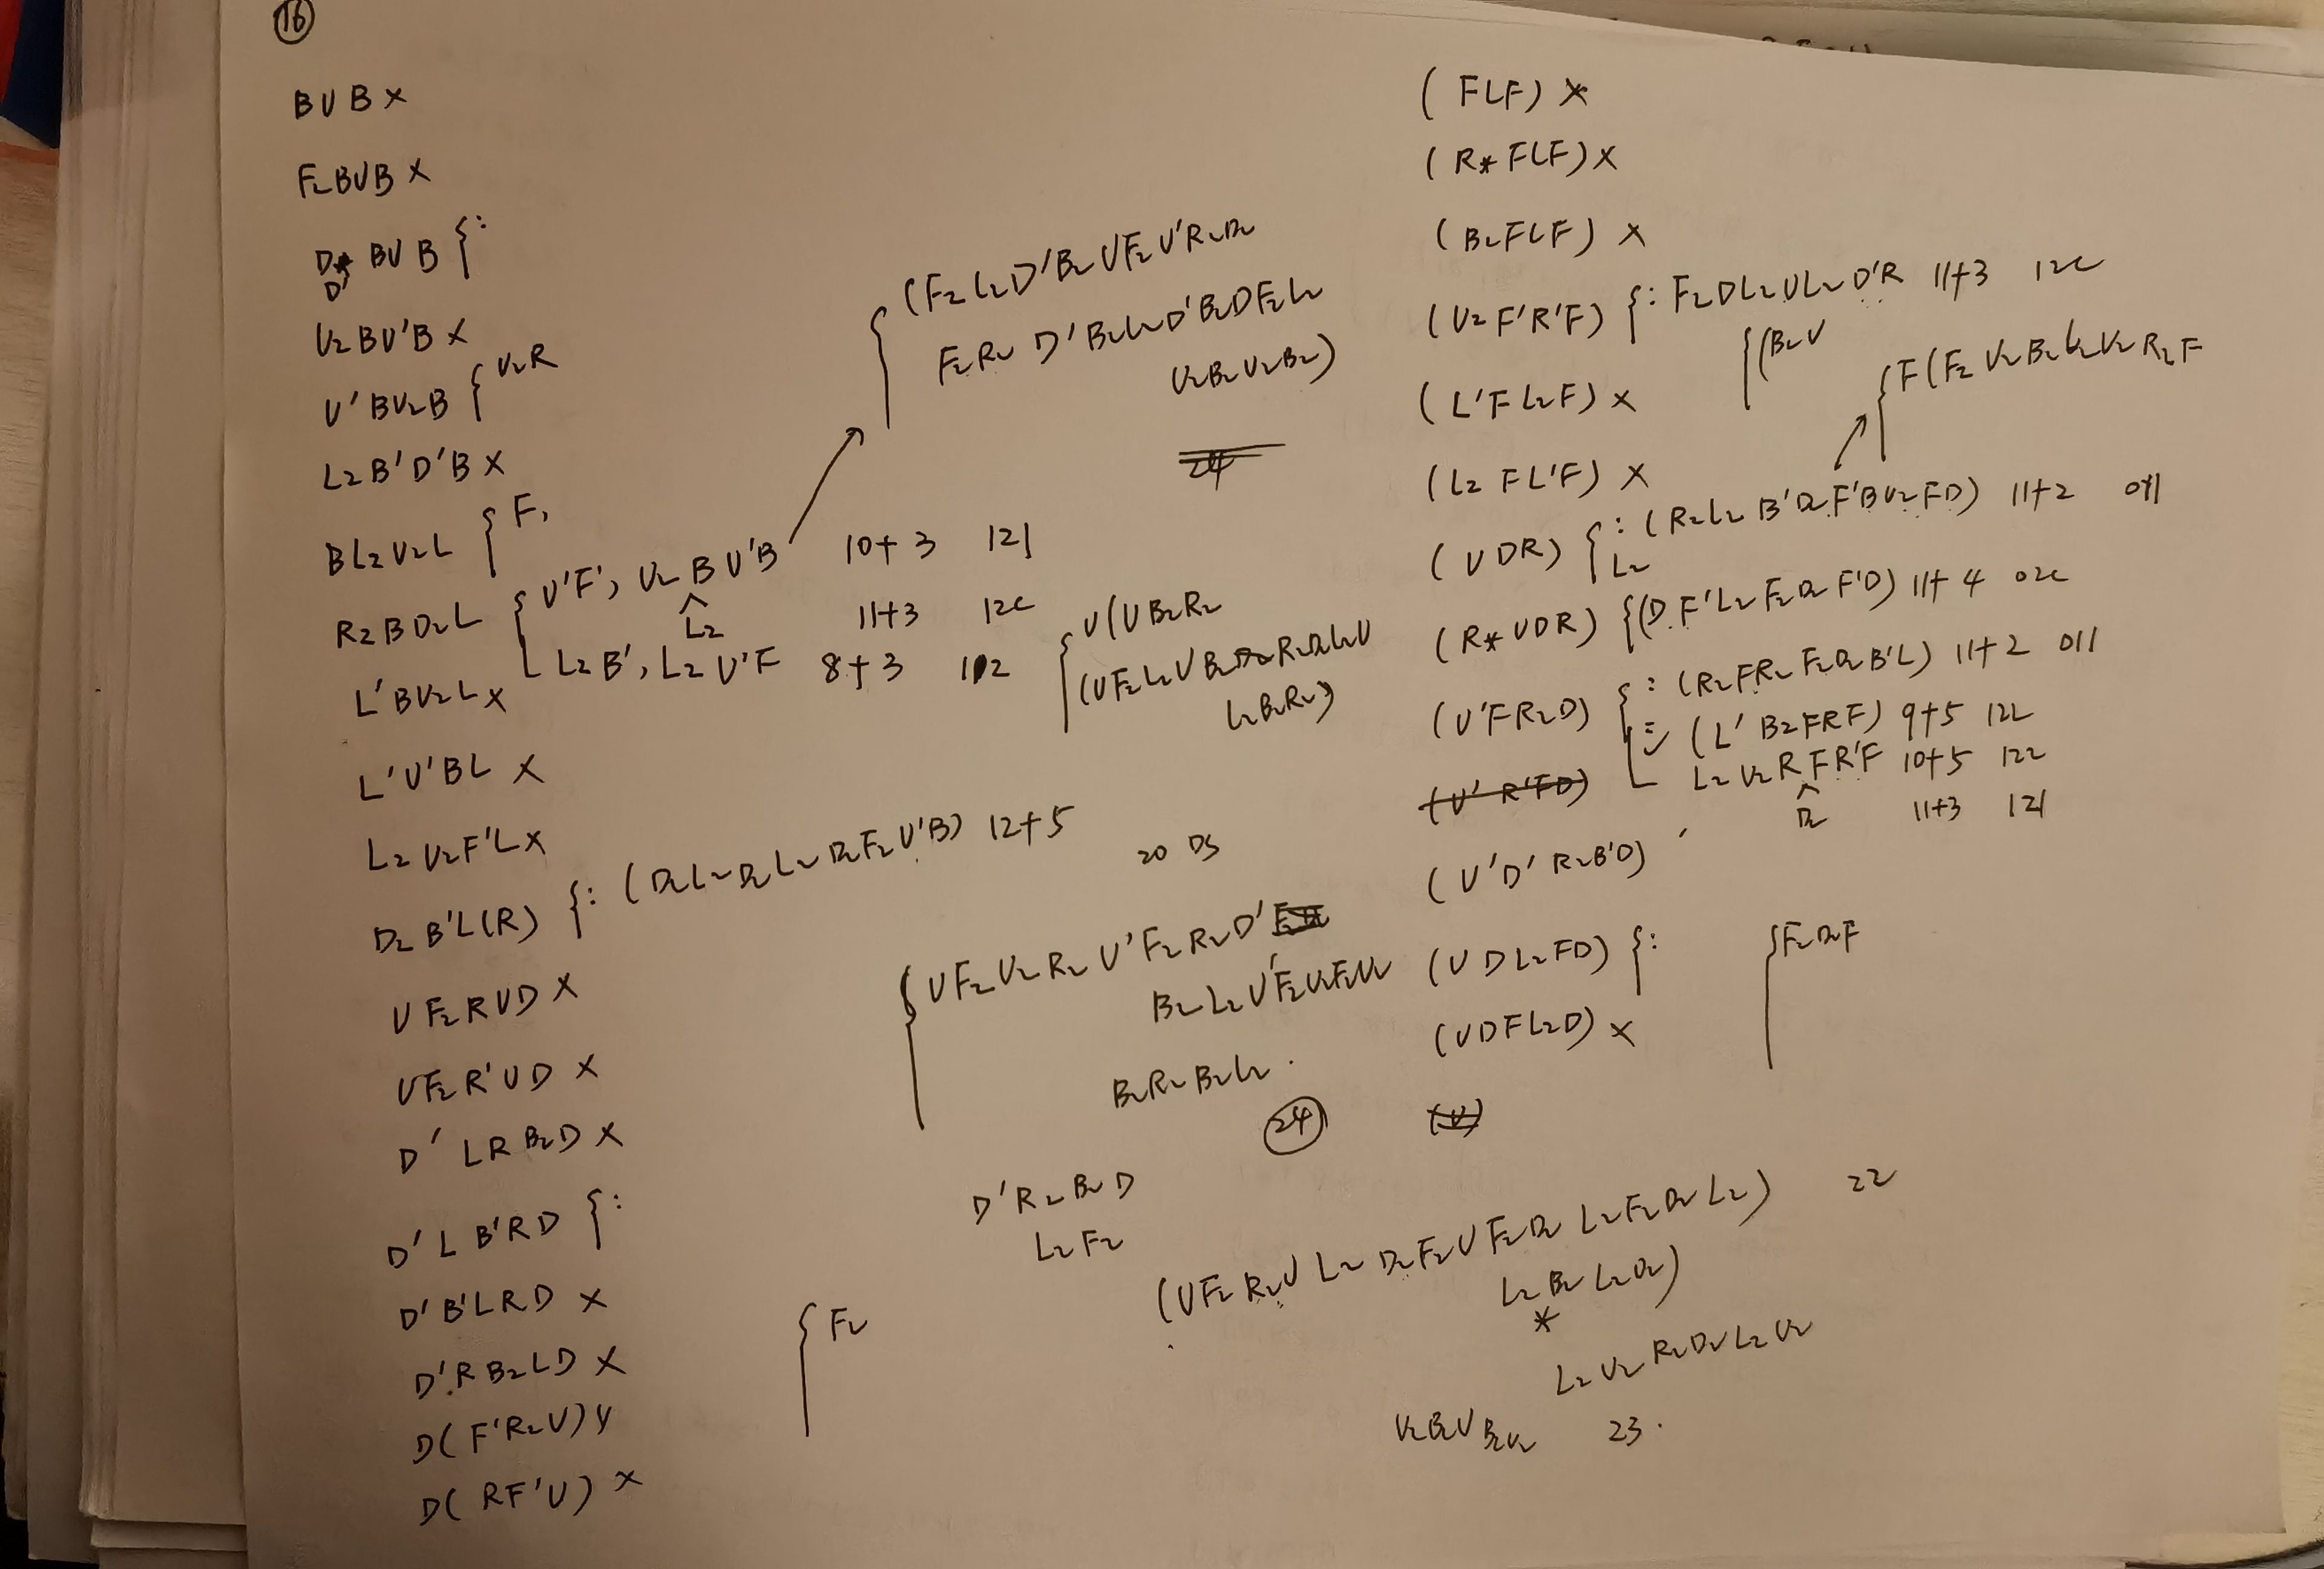 16
BUB x
F2BUB x
D* BUB {:
D'
U2BU'B x
U'BU2B { U2R
L2B'D'B x
BL2U2L { F,
R2BD2L { U'F', U2BU'B 10+3 121
L2 11+3 12c
L2B', L2U'F 8+3 112
L'BU2L x
L'U'BL x
L2U2F'L x
D2B'L(R) {: (D2L2D2L2D2F2U'B) 12+5
20 DS
UF2RUD x
UF2R'UD x
D'LRB2D x
D'LB'RD {:
D'B'LRD x
D'RB2LD x
D(F'R2U) y
D(RF'U) x
{ (F2L2D'B2UF2U'R2D2
F2R2D'B2L2D'B2DF2L2
U2B2U2B2)
24
{ U(UB2R2
(UF2L2UB2D2R2D2L2U
L2B2R2)
{ UF2U2R2U'F2R2D'
B2L2U'F2U2F2U2
B2R2B2L2.
24
D'R2B2D
L2F2
{ F2
(UF2R2UL2D2F2UF2D2L2F2D2L2) 22
L2B2L2D2)
*
L2U2R2D2L2U2
U2B2UB2U2 23.
(FLF) x
(R*FLF) x
(B2FLF) x
(U2F'R'F) {: F2DL2UL2D'R 11+3 12c
{ (B2U
(L'FL2F) x
{ F(F2U2B2L2U2R2F
(L2FL'F) x
(UDR) {: (R2L2B'D2F'BU2FD) 11+2 011
L2
(R*UDR) { (DF'L2F2D2F'D) 11+4 02c
(U'FR2D) {: (R2FR2F2D2B'L) 11+2 011
(L'B2FRF) 9+5 122
(U'R'FD) L2U2RFR'F 10+5 122
D2 11+3 121
(U'D'R2B'D)
(UDL2FD) {: { F2D2F
(UDFL2D) x
(U)